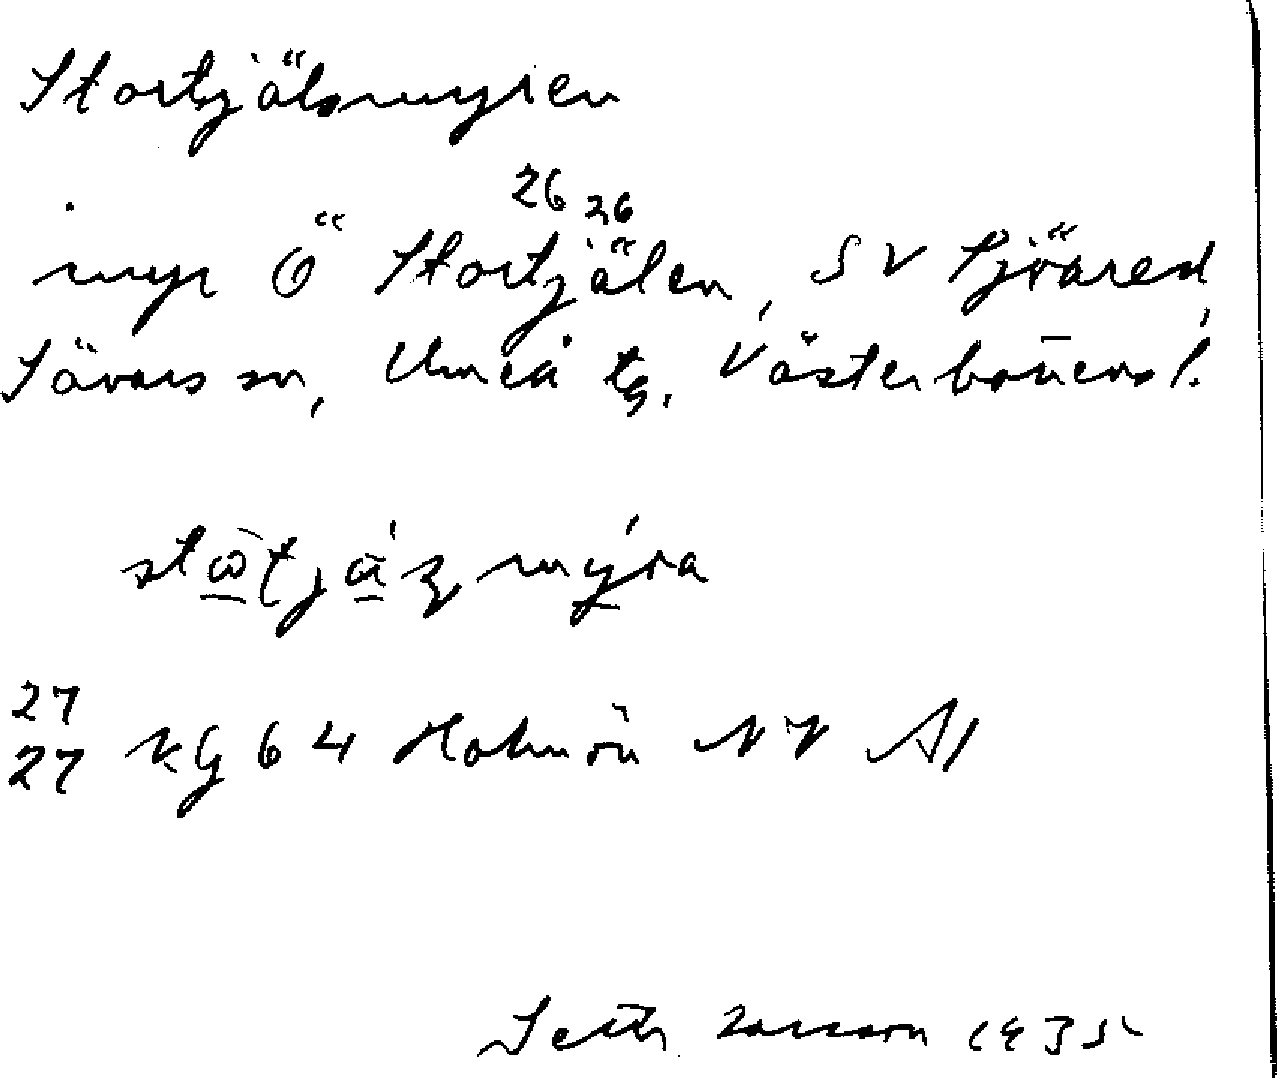 Stortjälsmyren
26 26
myr Ö Stortjälen, SV Sjöared,
Sävars sn, Umeå tg, Västerbottens l.
27
27 KG 64 Holmön NV Al
Seth Larsson 1935